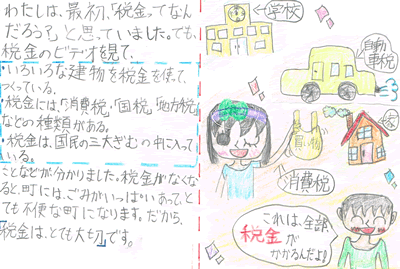 わたしは、最初、「税金ってなん
だろう?」と思っていました。でも、
税金のビデオを見て、
・いろいろな建物を税金を使って、
つくっている。
・税金には、「消費税」「国税」「地方税」
などの種類がある。
・税金は、国民の三大ぎむの中に入って
いる。
ことなどが分かりました。税金がなくな
ると、町には、ごみがいっぱいあって、と
ても不便な町になります。だから、
「税金は、とても大切」です。
学校
自動
車税
買い物
家
消費税
これは、全部、
税金が
かかるんだよ!